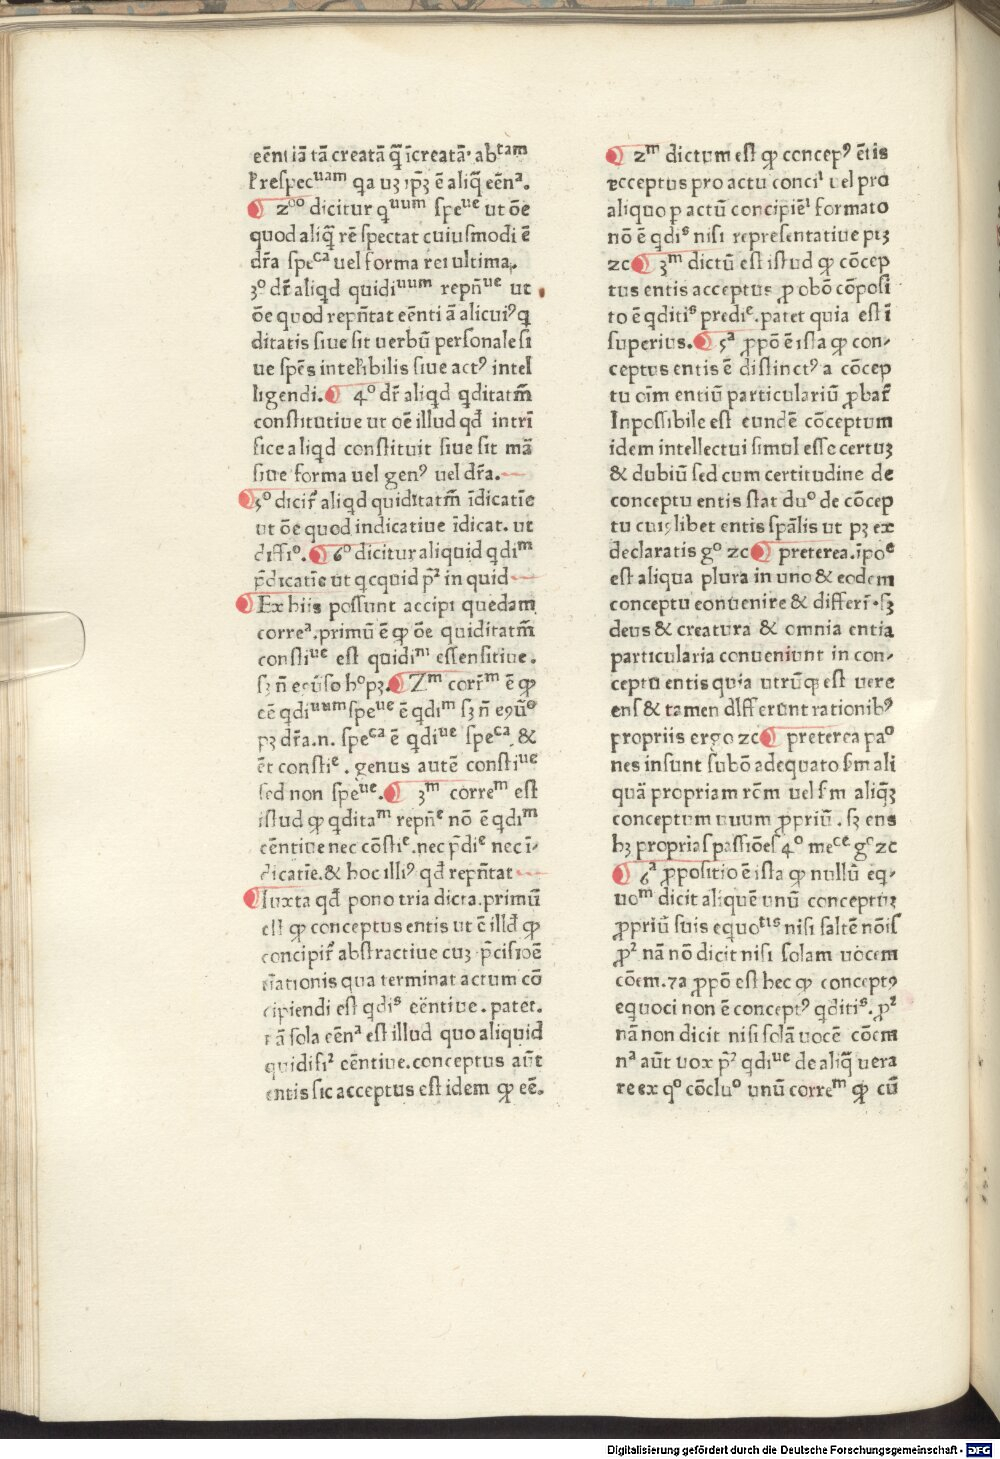 eēntiā tā creatā q̄ īcreatā· abtam
l' respecuam qa uꝫ ip̄ꝫ ē aliq̄ eēna.
¶ 2do dicitur quum speue ut ōe
quod aliq̄ rē spectat cuiusmodi ē
dr̄a speca uel forma rei ultima.
3o dr̄ aliqd quidiuum repn̄ue ut
ōe quod repn̄tat eēntiā alicuiꝰ q
ditatis siue sit uerbū personale si
ue spēs intel'ibilis siue actꝰ intel
ligendi. ¶ 4o dr̄ aliqd qditatm̄
constitutiue ut oē illud qd̄ intrī
sice aliqd constituit siue sit mā
siue forma uel genꝰ uel dr̄a.
¶ 5o dicit̄ aliqd quiditatm̄ īdicatīe
ut ōe quod indicatiue īdicat. ut
diffio. ¶ 6o dicitur aliquid qdim
p̄dicatīe ut qcquid p̄2 in quid
¶ Ex hiis possunt accipi quedam
correa. primū ē ꝙ ōe quiditatm̄
constiue est quidim essensitiue.
sꝫ n̄ ecūso hoc pꝫ. ¶ Zm corrm ē ꝙ
cē qdiuum speue ē qdim sꝫ n̄ eꝯūo
pꝫ dr̄a.n. speca ē qdiue speca. &
ēt constie. genus autē constiue
sed non speue. ¶ 3m correm est
istud ꝙ qditam repn̄e nō ē qdim
cēntiue nec cōstie. nec p̄die nec ī-
dicatīe. & hoc illiꝰ qd̄ repn̄tat
¶ Iuxta qd̄ pono tria dicta. primū
est ꝙ conceptus entis ut ē illd̄ ꝙ
concipit̄ abstractiue cuꝫ p̄cisiōe
rationis qua terminat actum cō
cipiendi est qdis eēntiue. patet.
nā sola eēna est illud quo aliquid
quidisi2 eēntiue. conceptus aūt
entis sic acceptus est idem ꝙ eē.
¶ 2m dictum est ꝙ concepꝰ ētis
acceptus pro actu conci1 uel pro
aliquo p actū concipiēi formato
nō ē qdis nisi representatiue ptꝫ
2c ¶ 3m dictū est istud ꝙ cōcep
tus entis acceptus p obō cōposi
to ē qditis predie. patet quia est ī
superius. ¶ 5a p̄pō ē ista ꝙ con-
ceptus entis ē distinctꝰ a cōcep
tu oīm entiū particulariū p̄bat̄
Inpossibile est eundē cōceptum
idem intellectui simul esse certuꝫ
& dubiū sed cum certitudine de
conceptu entis stat duo de cōcep
tu cuiꝯlibet entis spālis ut pꝫ ex
declaratis go 2c ¶ preterea. īpoe
est aliqua plura in uno & eodem
conceptu conuenire & differī. sꝫ
deus & creatura & omnia entia
particularia conueniunt in con-
ceptu entis quia utrūqꝫ est uere
ens & tamen differunt rationibꝰ
propriis ergo 2c ¶ preterea pao
nes insunt subō adequato sm ali
quā propriam rēm uel sm aliqꝫ
conceptum unum p̄priū. sꝫ ens
hꝫ proprias passiōes 4o mece go 2c
¶ 6a p̄positio ē ista ꝙ nullū eq-
uom dicit aliquē unū conceptuꝫ
p̄priū suis equotis nisi saltē nōis
p̄2 nā nō dicit nisi solam uocem
cōem. 7a p̄pō est hec ꝙ conceptꝰ
equoci non ē conceptꝰ qditis. p2
nā non dicit nisi solā uocē cōem
na aūt uox p̄2 qdiue de aliq̄ uera
re ex qo cōcluo unū correm ꝙ cū
Digitalisierung gefördert durch die Deutsche Forschungsgemeinschaft - DFG